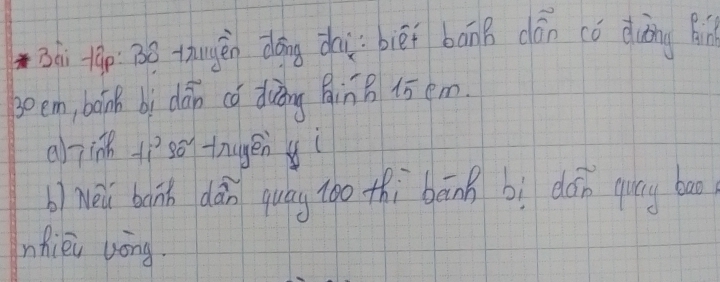 * Bài tập: Bộ truyền động đai: biết bánh dẫn có đường kính
30 cm, bánh bị dẫn có đường kính 15 cm.
a) Tính tỉ số truyền i
b) Nếu bánh dẫn quay 100 thì bánh bị dẫn quay bao
nhiêu vòng.